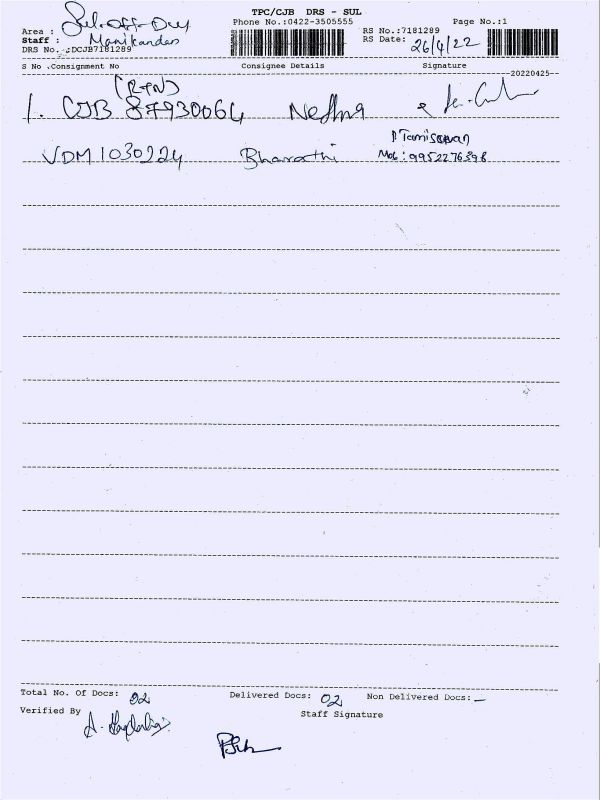 TPC/CJB DRS - SUL
Area : Sul-Off-Duy Phone No.:0422-3505555 Page No.:1
Staff : Manikandan RS No.:7181289
DRS No. :DCJB7181289 RS Date: 26/4/22
S No .Consignment No Consignee Details Signature
--20220425--
(RTN)
1. CJB 87930064 Nedhra
VDM1030224 Bharathi
Mob: 9952276398
Total No. Of Docs: 02 Delivered Docs: 02 Non Delivered Docs: –
Verified By Staff Signature